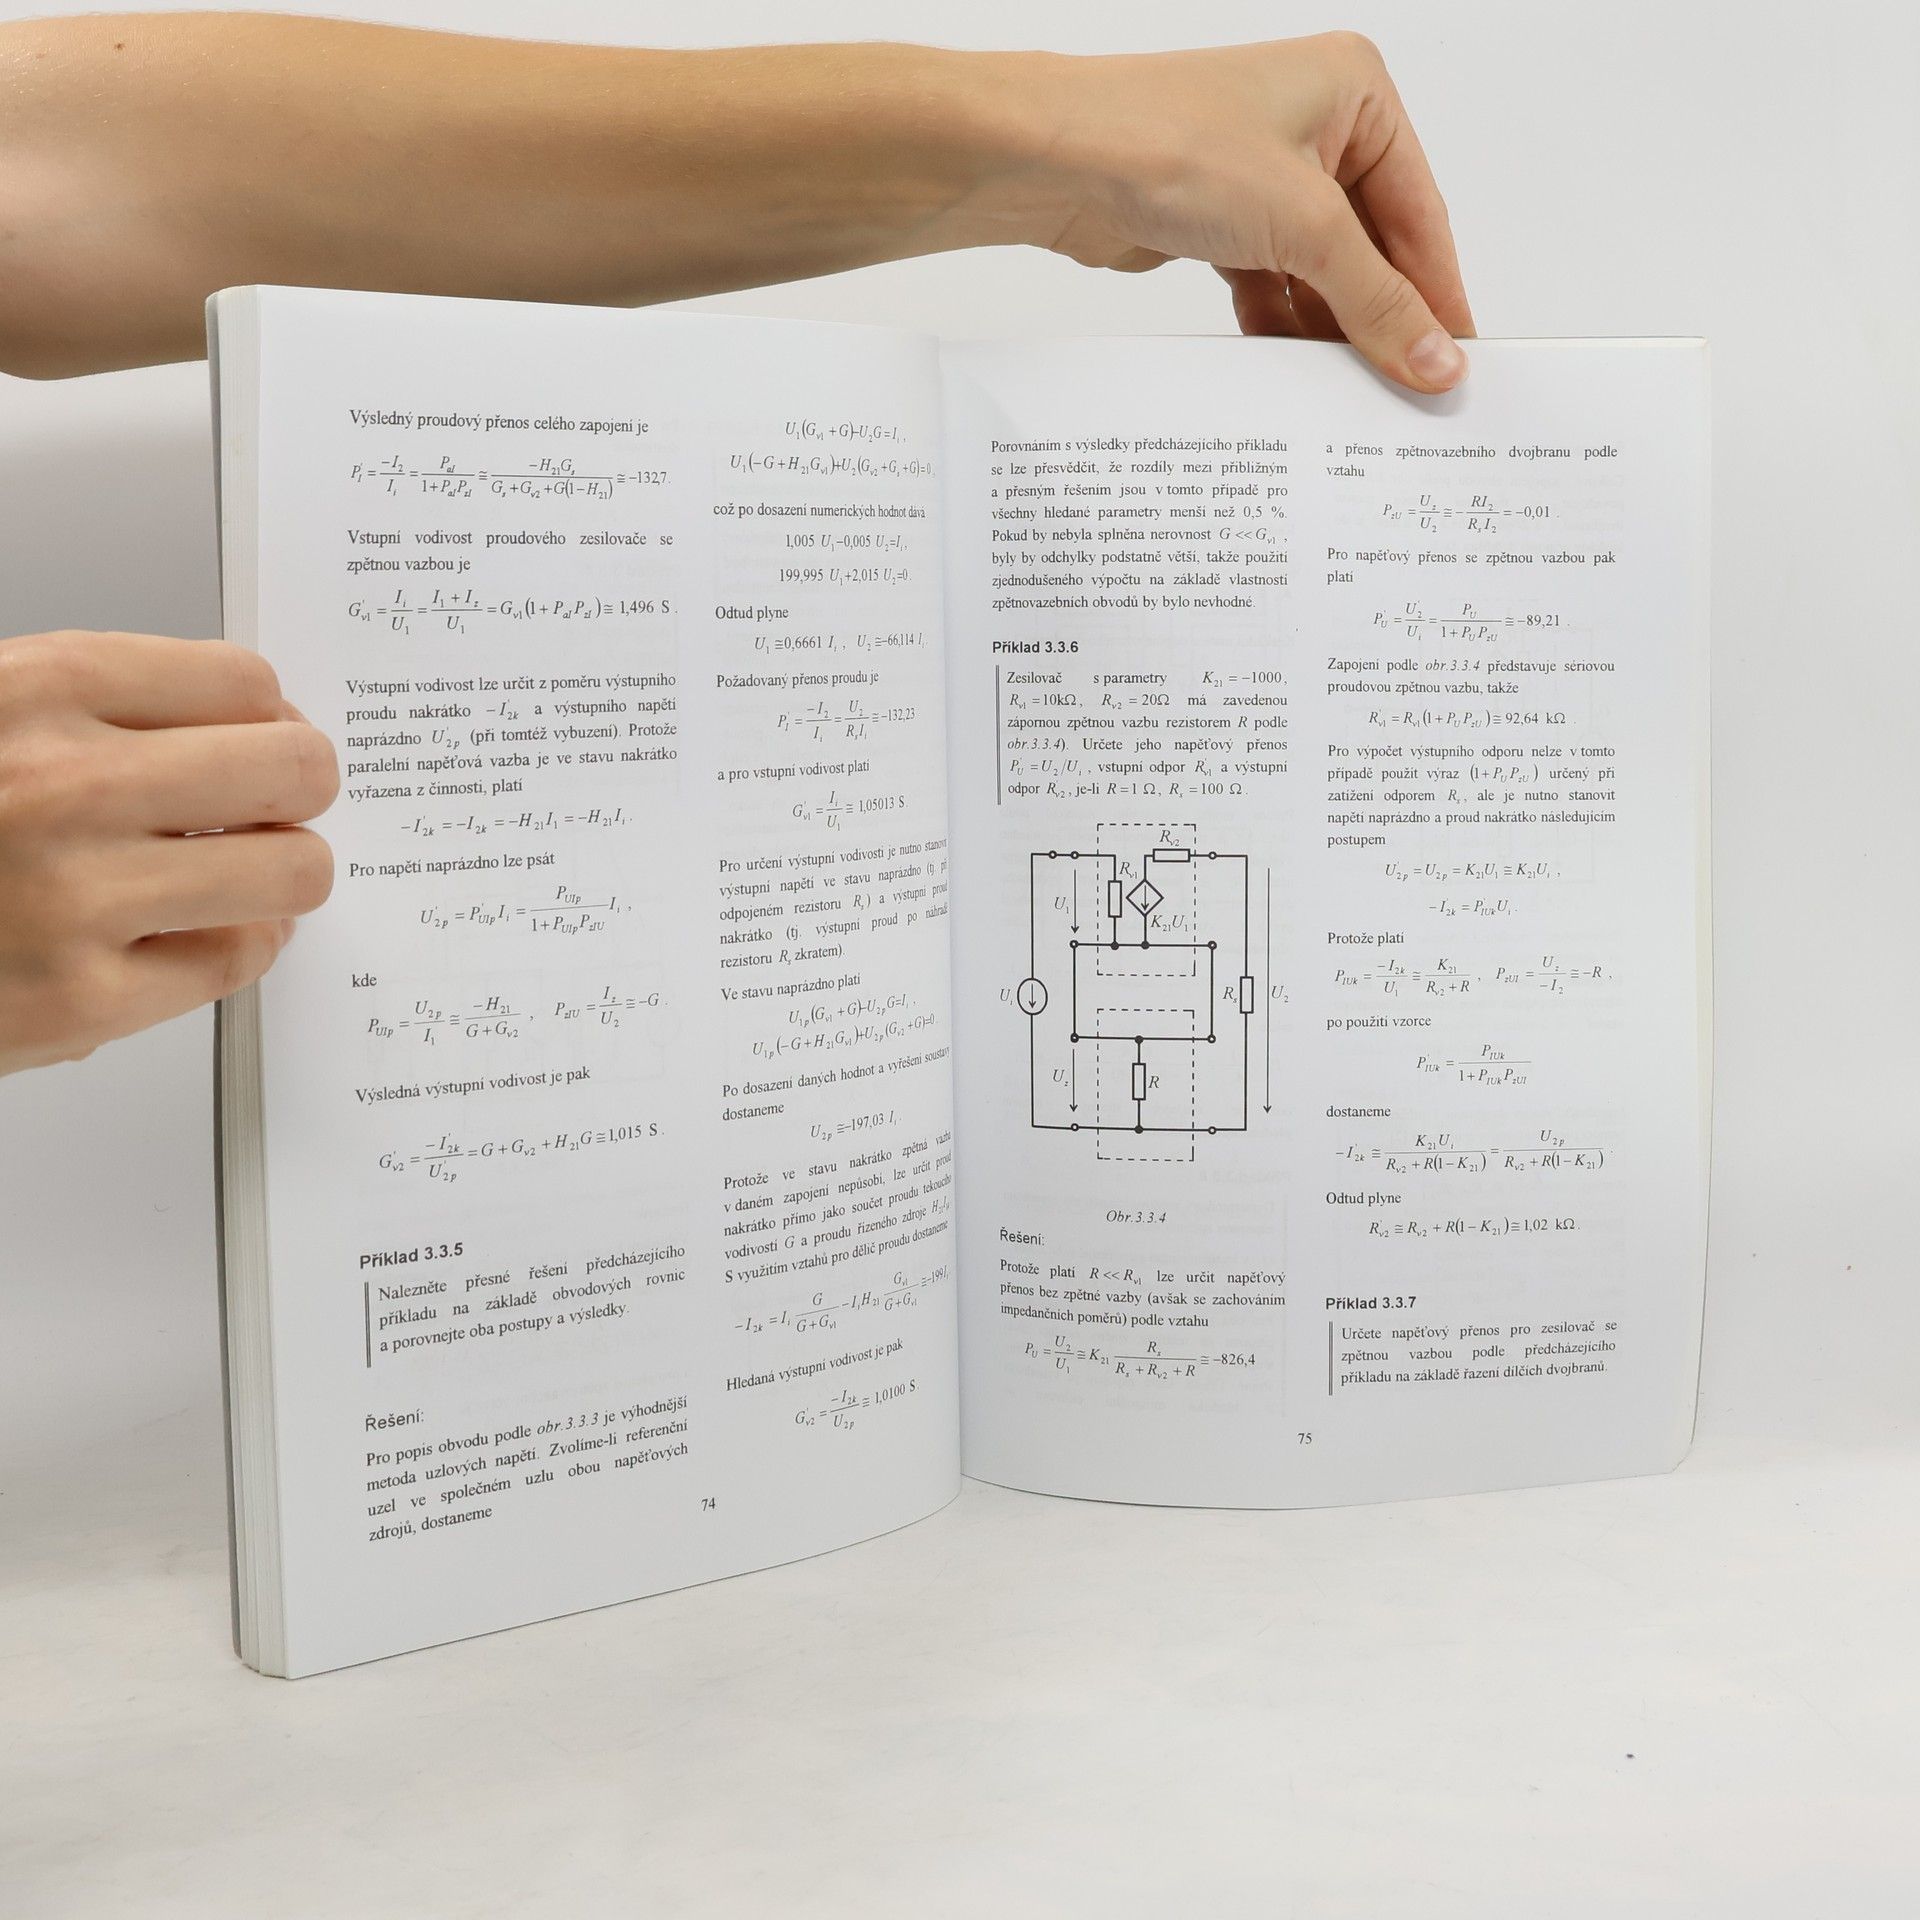 Výsledný proudový přenos celého zapojení je
P'_I = -I_2 / I_i = P_aI / (1+P_aI P_zI) ≅ -H_21 G_s / (G_s+G_v2+G(1-H_21)) ≅ -132,7.
Vstupní vodivost proudového zesilovače se
zpětnou vazbou je
G'_v1 = I_i / U_1 = (I_1 + I_z) / U_1 = G_v1(1 + P_aI P_zI) ≅ 1,496 S .
Výstupní vodivost lze určit z poměru výstupního
proudu nakrátko -I'_2k a výstupního napětí
naprázdno U'_2p (při tomtéž vybuzení). Protože
paralelní napěťová vazba je ve stavu nakrátko
vyřazena z činnosti, platí
-I'_2k = -I_2k = -H_21 I_1 = -H_21 I_i .
Pro napětí naprázdno lze psát
U'_2p = P'_UIp I_i = P_UIp / (1 + P_UIp P_zIU) I_i ,
kde
P_UIp = U_2p / I_1 ≅ -H_21 / (G + G_v2) , P_zIU = I_z / U_2 ≅ -G .
Výsledná výstupní vodivost je pak
G'_v2 = -I'_2k / U'_2p = G + G_v2 + H_21 G ≅ 1,015 S .
Příklad 3.3.5
Nalezněte přesné řešení předcházejícího
příkladu na základě obvodových rovnic
a porovnejte oba postupy a výsledky.
Řešení:
Pro popis obvodu podle obr.3.3.3 je výhodnější
metoda uzlových napětí. Zvolíme-li referenční
uzel ve společném uzlu obou napěťových
zdrojů, dostaneme
U_1(G_v1 + G)-U_2 G = I_i ,
U_1(-G + H_21 G_v1)+U_2(G_v2 + G_s + G)=0 ,
což po dosazení numerických hodnot dává
1,005 U_1-0,005 U_2=I_i,
199,995 U_1+2,015 U_2=0.
Odtud plyne
U_1 ≅0,6661 I_i , U_2 ≅-66,114 I_i
Požadovaný přenos proudu je
P'_I = -I_2 / I_i = U_2 / R_s I_i ≅ -132,23
a pro vstupní vodivost platí
G'_v1 = I_i / U_1 ≅ 1,05013 S.
Pro určení výstupní vodivosti je nutno stanovit
výstupní napětí ve stavu naprázdno (tj. při
odpojeném rezistoru R_s) a výstupní proud
nakrátko (tj. výstupní proud po náhradě
rezistoru R_s zkratem).
Ve stavu naprázdno platí
U_1p(G_v1 + G)-U_2p G=I_i ,
U_1p(-G + H_21 G_v1)+U_2p(G_v2 + G)=0.
Po dosazení daných hodnot a vyřešení soustavy
dostaneme
U_2p ≅-197,03 I_i .
Protože ve stavu nakrátko zpětná vazba
v daném zapojení nepůsobí, lze určit proud
nakrátko přímo jako součet proudu tekoucího
vodivostí G a proudu řízeného zdroje H_21 I_1.
S využitím vztahů pro dělič proudu dostaneme
-I_2k = I_i G / (G + G_v1) - I_i H_21 G_v1 / (G + G_v1) ≅ -199 I_i
Hledaná výstupní vodivost je pak
G'_v2 = -I_2k / U_2p ≅ 1,0100 S.
74
Porovnáním s výsledky předcházejícího příkladu
se lze přesvědčit, že rozdíly mezi přibližným
a přesným řešením jsou v tomto případě pro
všechny hledané parametry menší než 0,5 %.
Pokud by nebyla splněna nerovnost G << G_v1 ,
byly by odchylky podstatně větší, takže použití
zjednodušeného výpočtu na základě vlastností
zpětnovazebních obvodů by bylo nevhodné.
Příklad 3.3.6
Zesilovač s parametry K_21 = -1000,
R_v1 = 10kΩ, R_v2 = 20Ω má zavedenou
zápornou zpětnou vazbu rezistorem R podle
obr.3.3.4). Určete jeho napěťový přenos
P'_U = U_2/U_i , vstupní odpor R'_v1 a výstupní
odpor R'_v2 , je-li R = 1 Ω, R_s = 100 Ω .
R_v2
R_v1
U_1
K_21 U_1
U_i
R_s
U_2
U_z
R
Obr.3.3.4
Řešení:
Protože platí R << R_v1 lze určit napěťový
přenos bez zpětné vazby (avšak se zachováním
impedančních poměrů) podle vztahu
P_U = U_2 / U_1 ≅ K_21 R_s / (R_s + R_v2 + R) ≅ -826,4
a přenos zpětnovazebního dvojbranu podle
vztahu
P_zU = U_z / U_2 ≅ - R I_2 / R_s I_2 = -0,01 .
Pro napěťový přenos se zpětnou vazbou pak
platí
P'_U = U'_2 / U_i = P_U / (1 + P_U P_zU) ≅ -89,21 .
Zapojení podle obr.3.3.4 představuje sériovou
proudovou zpětnou vazbu, takže
R'_v1 = R_v1(1 + P_U P_zU) ≅ 92,64 kΩ .
Pro výpočet výstupního odporu nelze v tomto
případě použít výraz (1 + P_U P_zU) určený při
zatížení odporem R_s, ale je nutno stanovit
napětí naprázdno a proud nakrátko následujícím
postupem
U'_2p = U_2p = K_21 U_1 ≅ K_21 U_i ,
-I'_2k = P'_IUk U_i .
Protože platí
P_IUk = -I_2k / U_1 ≅ K_21 / (R_v2 + R) , P_zUI = U_z / -I_2 ≅ -R ,
po použití vzorce
P'_IUk = P_IUk / (1 + P_IUk P_zUI)
dostaneme
-I'_2k ≅ K_21 U_i / (R_v2 + R(1 - K_21)) = U_2p / (R_v2 + R(1 - K_21)) .
Odtud plyne
R'_v2 ≅ R_v2 + R(1 - K_21) ≅ 1,02 kΩ .
Příklad 3.3.7
Určete napěťový přenos pro zesilovač se
zpětnou vazbou podle předcházejícího
příkladu na základě řazení dílčích dvojbranů.
75